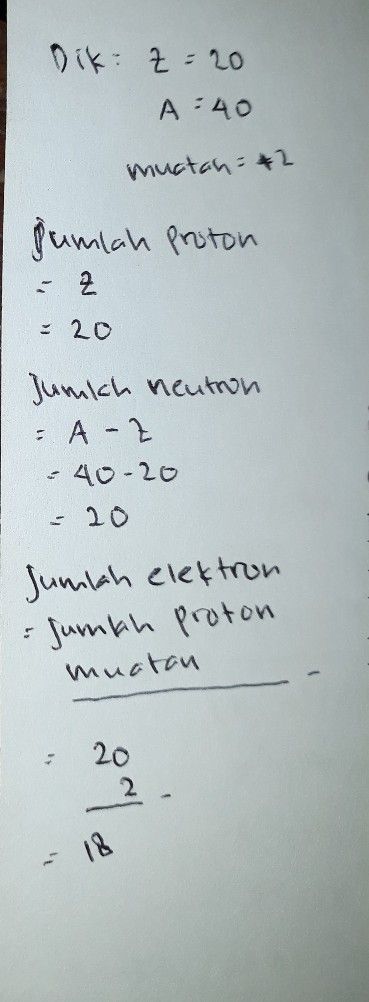 Dik: Z = 20
A = 40
muatan = +2
Jumlah proton
= Z
= 20
Jumlah neutron
= A - Z
= 40-20
= 20
Jumlah elektron
= Jumlah proton
muatan
-
= 20
2 -
= 18